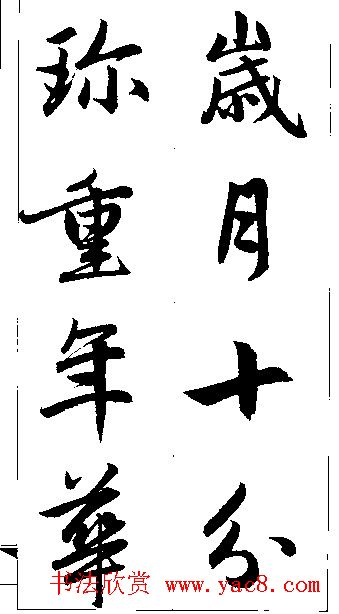 歲月十分
珎重年華
书法欣赏 www.yac8.com